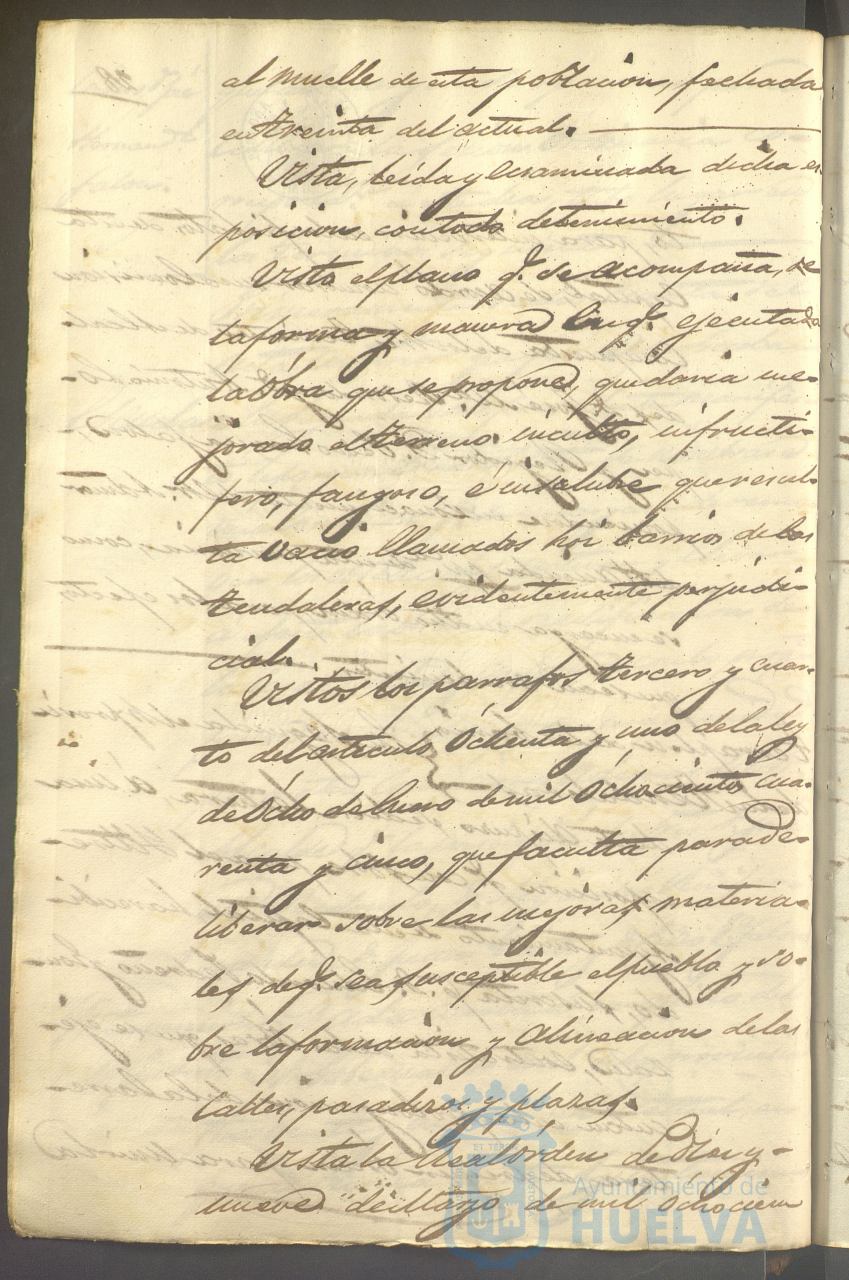 al muelle de esta poblacion, fechada
en treinta del actual.
Vista, leida y ecsaminada dicha es-
posicion, con todo detenimiento.
Visto el plano q.e se acompaña, de
la forma y manera en q.e ejecutada
la Obra que se propone, quedaria me-
jorado el terreno inculto, infructi-
fero, fangoso, é insalubre que resul-
ta vacio llamados hoi barrios de las
tendaleras, evidentemente perjudi-
cial.
Vistos los parrafos tercero y cuar-
to del articulo Ochenta y uno de la ley
de Ócho de Enero de mil Óchocientos cua-
renta y cinco, que faculta para de-
liberar sobre las mejoras materia-
les de q.e sea susceptible el pueblo y so-
bre la formacion y alineacion de las
calles, pasadizos y plazas.
Vista la Real órden de diez y
nueve de Marzo de mil óchocien
Ayuntamiento de
HUELVA